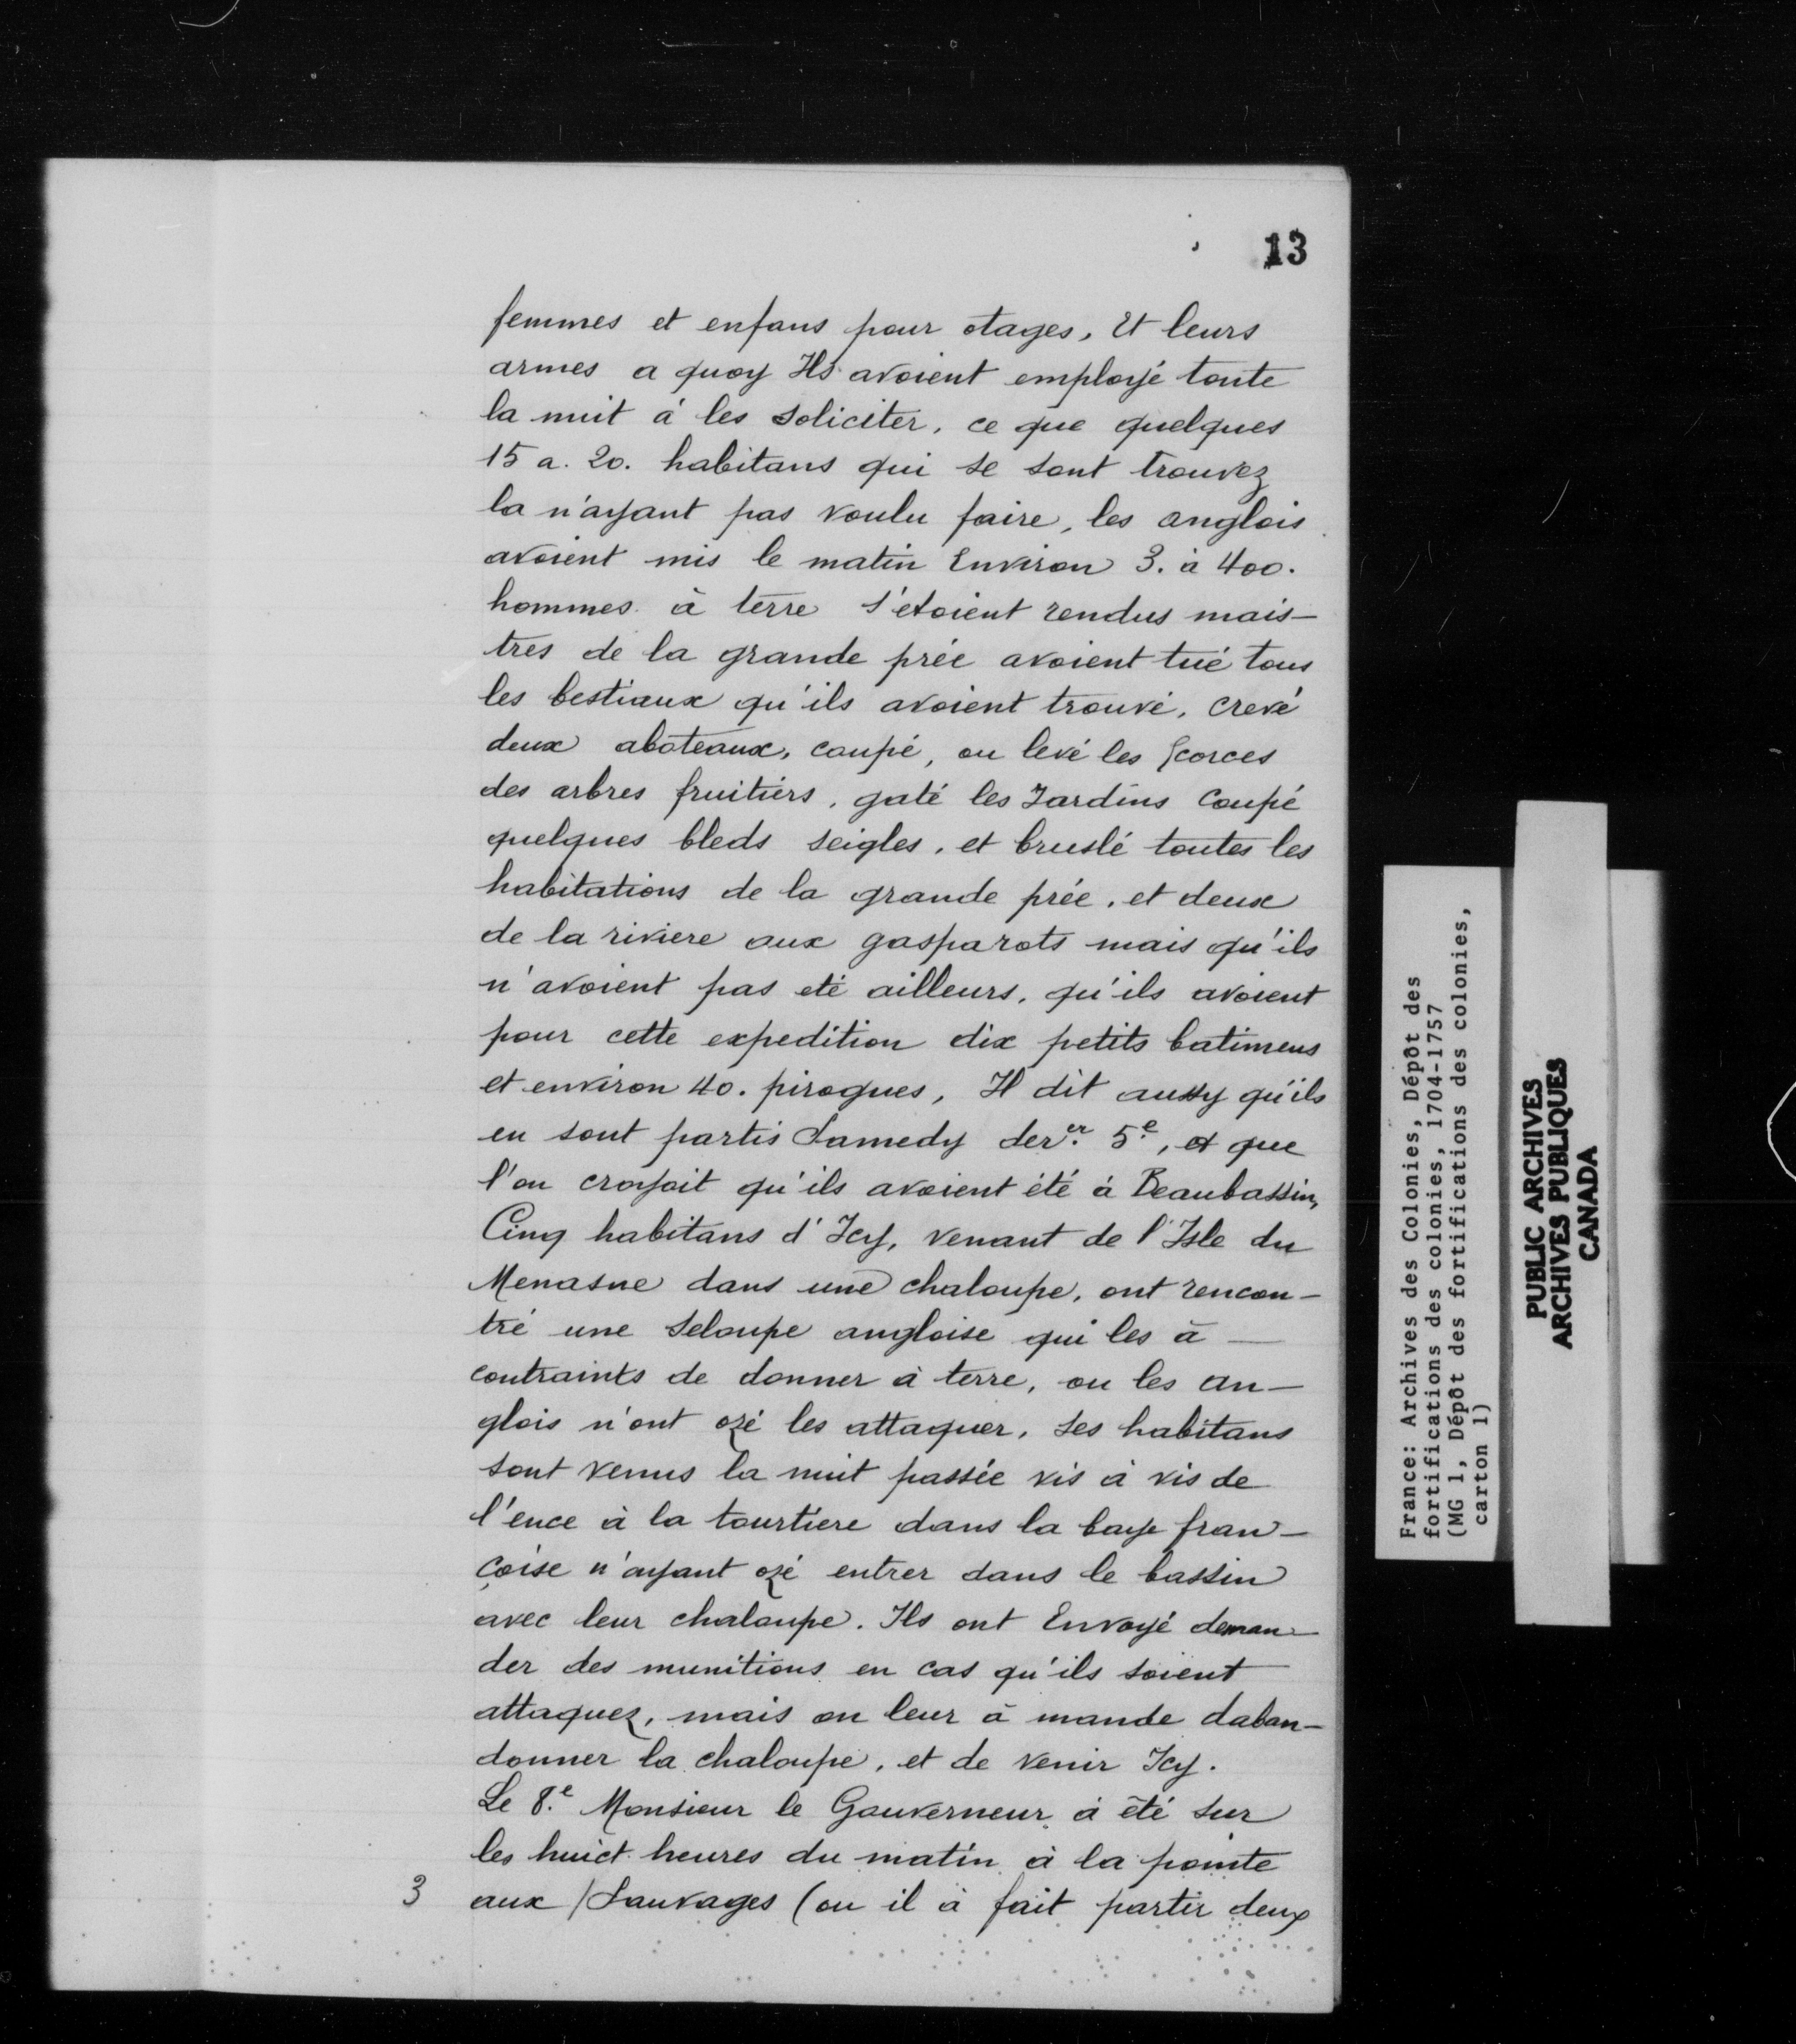 13
femmes et enfans pour otages, Et leurs
armes a quoy Ils avoient employé toute
la nuit à les soliciter, ce que quelques
15 a. 20. habitans qui se sont trouvez
la n'ayant pas voulu faire, les anglois
avoient mis le matin Environ 3. à 400.
hommes à terre s'etoient rendus mais-
tres de la grande prée avoient tué tous
les bestiaux qu'ils avoient trouvé, crevé
deux aboteaux, coupé, ou levé les Ecorces
des arbres fruitiers, gaté les Jardins Coupé
quelques bleds seigles, et bruslé toutes les
habitations de la grande prée, et deux
de la riviere aux gasparots mais qu'ils
n'avoient pas eté ailleurs, qu'ils avoient
pour cette expedition dix petits batimens
et environ 40. pirogues, Il dit aussy qu'ils
en sont partis Samedy der.er 5.e, et que
l'on croyoit qu'ils avoient été à Beaubassin,
Cinq habitans d'Icy, venant de l'Isle du
Menasne dans une chaloupe, ont rencon-
tré une Seloupe angloise qui les à —
contraints de donner à terre, ou les an-
glois n'ont ozé les attaquer, ses habitans
sont venus la nuit passée vis à vis de
l'ence à la tourtiere dans la baye fran-
çoise n'ayant ozé entrer dans le bassin
avec leur chaloupe. Ils ont Envoyé deman-
der des munitions en cas qu'ils soient
attaquez, mais on leur à mande daban-
donner la chaloupe, et de venir Icy.
Le 8.e Monsieur le Gouverneur à été sur
les huict heures du matin à la pointe
3 aux / Sauvages (ou il à fait partir deux
France: Archives des Colonies, Dépôt des
fortifications des colonies, 1704-1757
(MG 1, Dépôt des fortifications des colonies,
carton 1)
PUBLIC ARCHIVES
ARCHIVES PUBLIQUES
CANADA